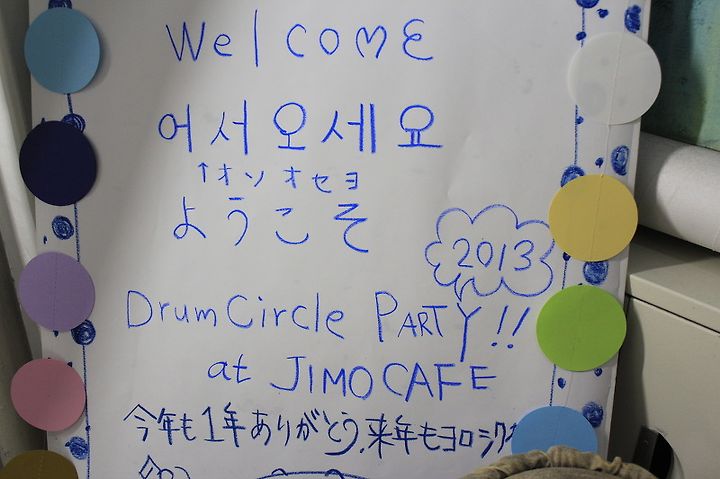 Welcome
어서오세요
↑オソオセヨ
ようこそ
2013
Drum Circle PARTY!!
at JIMO CAFE
今年も1年ありがとう、来年もヨロシク